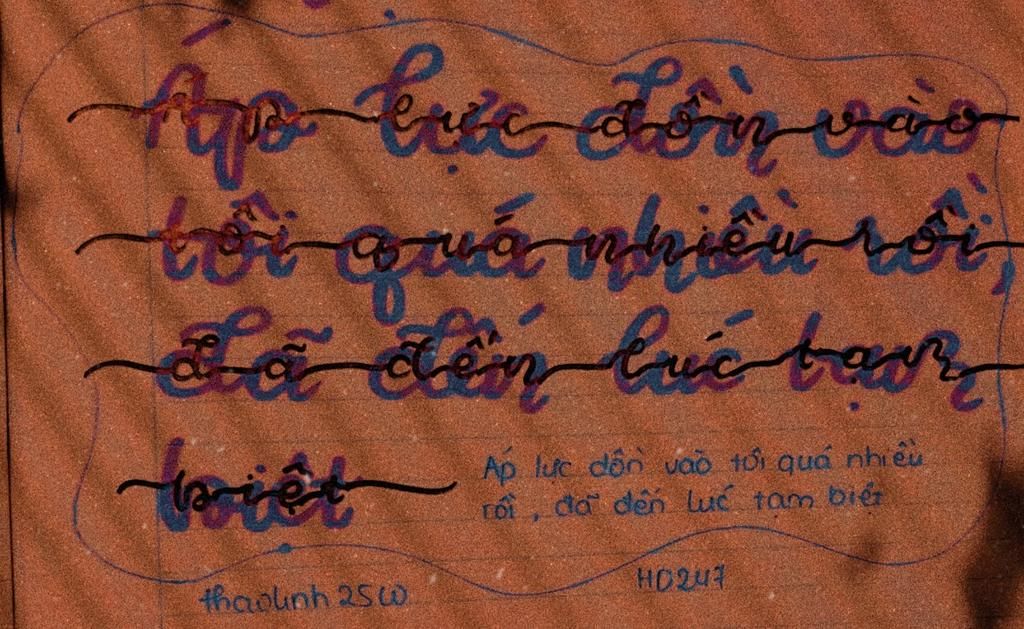 Áp lực dồn vào
tồi quá nhiều rồi,
đã đến lúc tạm
biệt
Áp lực dồn vào tới quá nhiều
rồi, đã đến lúc tạm biệt
thaolinh25w
HD247